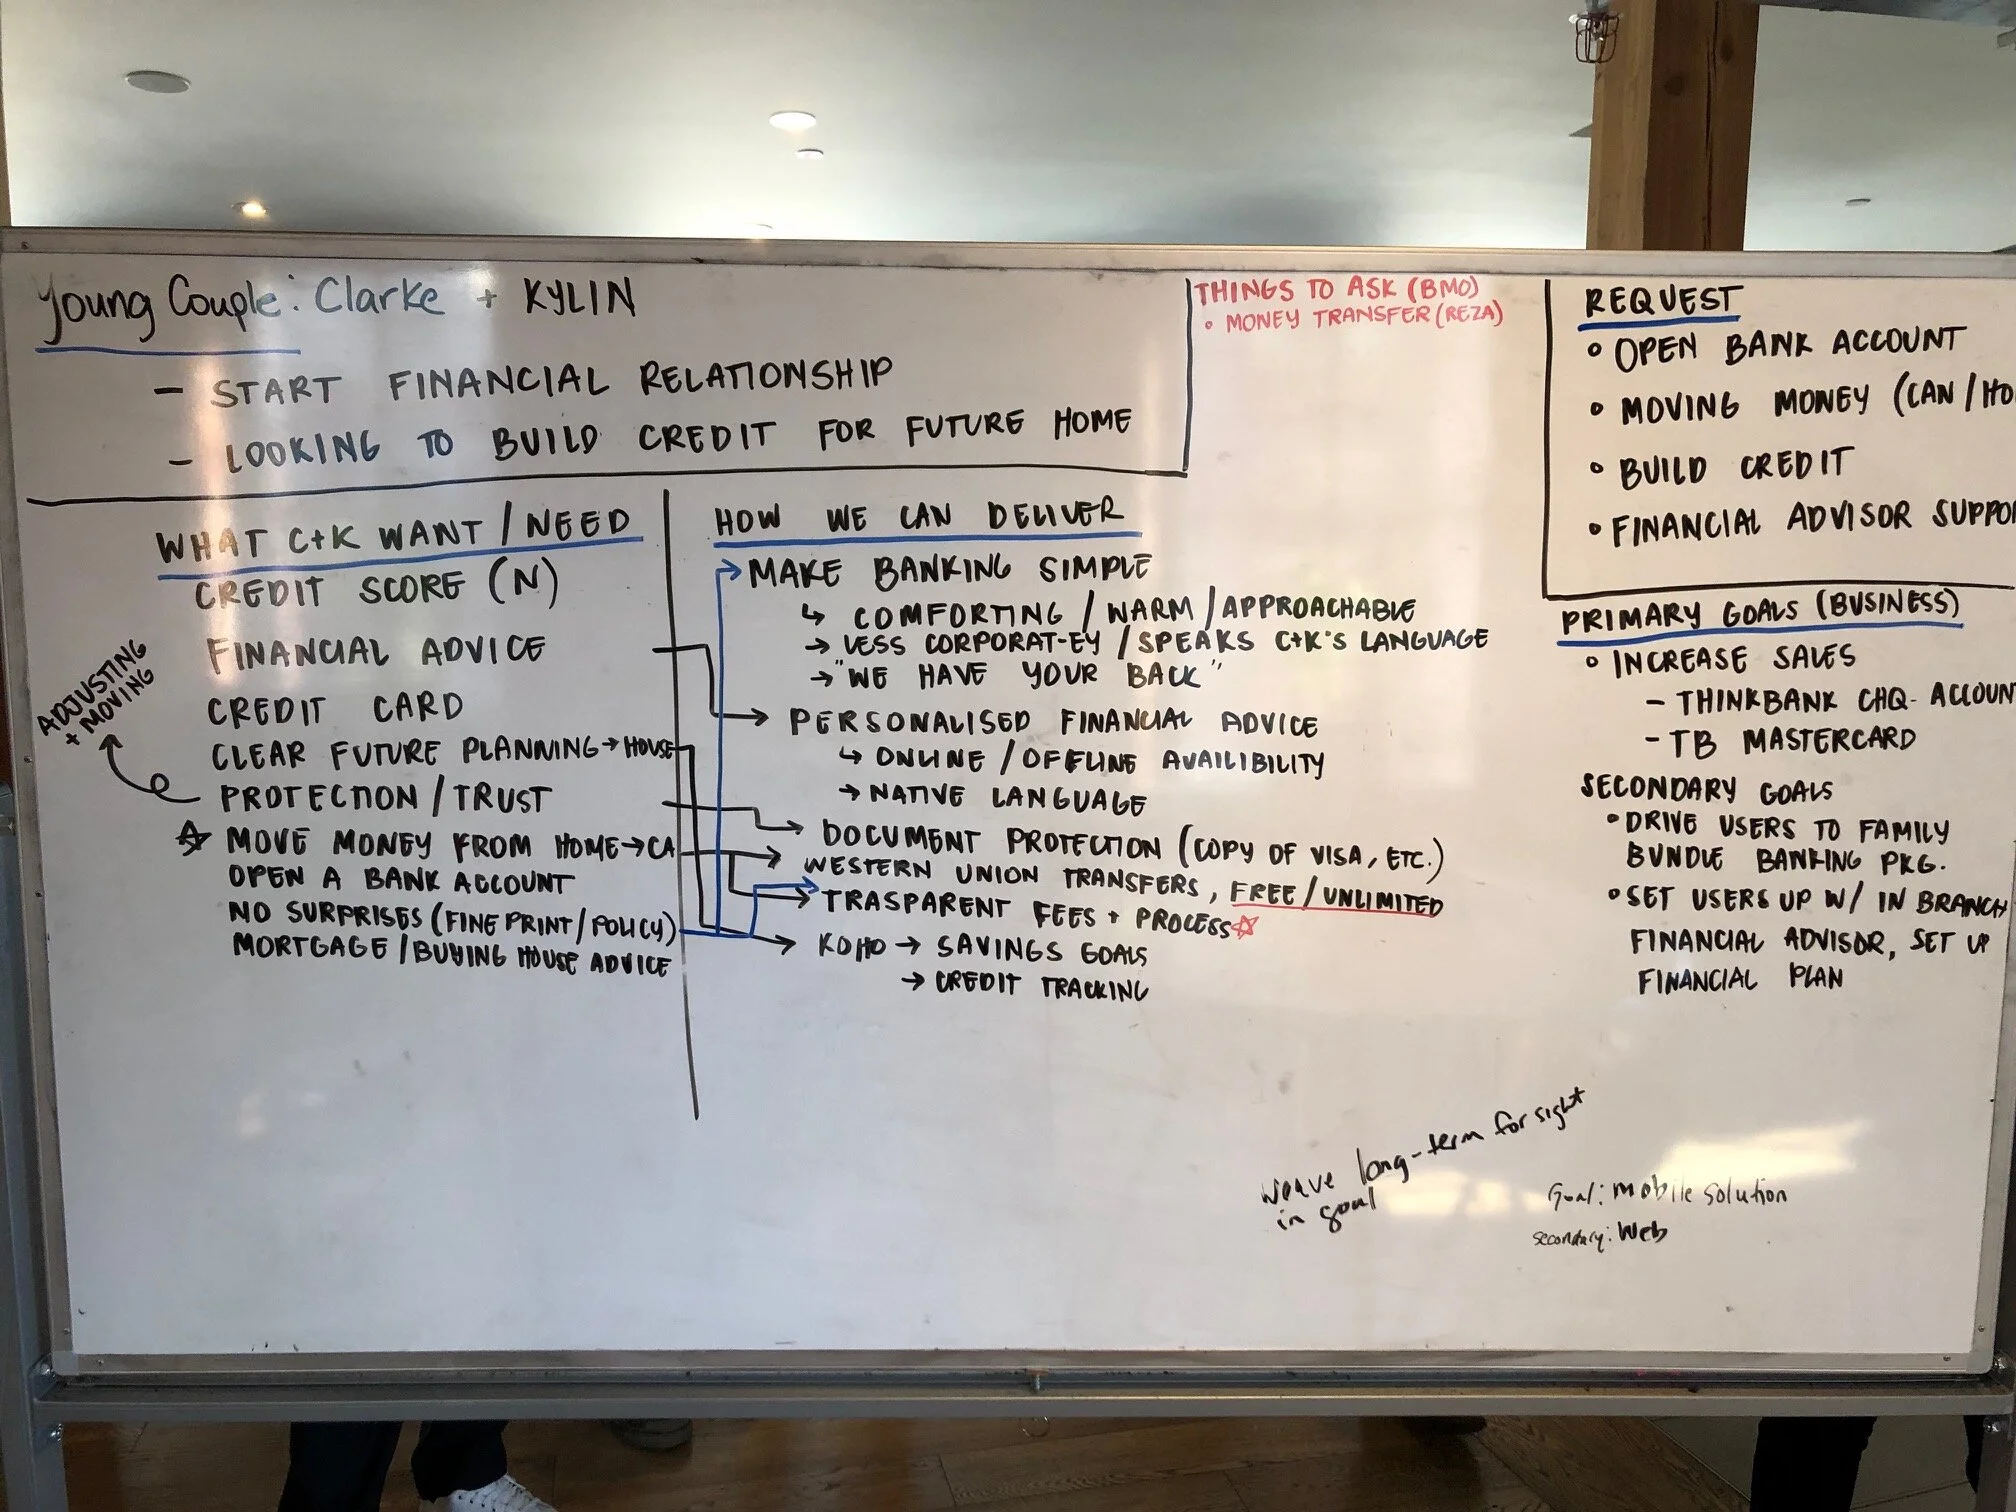 Young Couple: Clarke + KYLIN
– START FINANCIAL RELATIONSHIP
– LOOKING TO BUILD CREDIT FOR FUTURE HOME
THINGS TO ASK (BMO)
• MONEY TRANSFER (REZA)
REQUEST
• OPEN BANK ACCOUNT
• MOVING MONEY (CAN/HO
• BUILD CREDIT
• FINANCIAL ADVISOR SUPPO
WHAT C+K WANT/NEED
CREDIT SCORE (N)
FINANCIAL ADVICE
CREDIT CARD
CLEAR FUTURE PLANNING → HOUSE
PROTECTION/TRUST
ADJUSTING
+ MOVING
☆ MOVE MONEY FROM HOME → CA
OPEN A BANK ACCOUNT
NO SURPRISES (FINE PRINT/POLICY)
MORTGAGE/BUYING HOUSE ADVICE
HOW WE CAN DELIVER
→ MAKE BANKING SIMPLE
↳ COMFORTING / WARM / APPROACHABLE
→ LESS CORPORAT-EY / SPEAKS C+K'S LANGUAGE
→ "WE HAVE YOUR BACK"
→ PERSONALISED FINANCIAL ADVICE
↳ ONLINE / OFFLINE AVAILIBILITY
→ NATIVE LANGUAGE
→ DOCUMENT PROTECTION (COPY OF VISA, ETC.)
→ WESTERN UNION TRANSFERS, FREE/UNLIMITED
→ TRASPARENT FEES + PROCESS ☆
→ KOHO → SAVINGS GOALS
→ CREDIT TRACKING
PRIMARY GOALS (BUSINESS)
• INCREASE SALES
– THINKBANK CHQ- ACCOUN
– TB MASTERCARD
SECONDARY GOALS
• DRIVE USERS TO FAMILY
BUNDLE BANKING PKG.
• SET USERS UP W/ IN BRANCH
FINANCIAL ADVISOR, SET UP
FINANCIAL PLAN
weave long-term forsight
in goal
Goal: mobile solution
secondary: Web